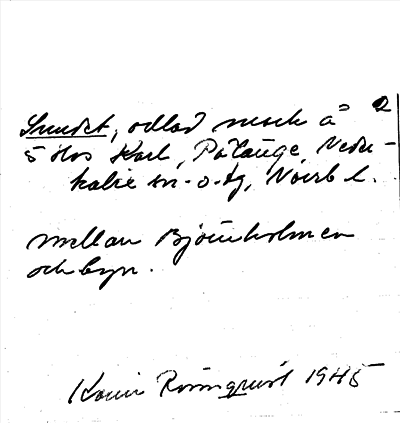 2
Sundet, odlad mark å
5 Hos Karl, Påtänge, Neder-
kalix sn. o. tg, Norrb l.
mellan Björnholmen
och byn.
Karin Rönnquist 1945